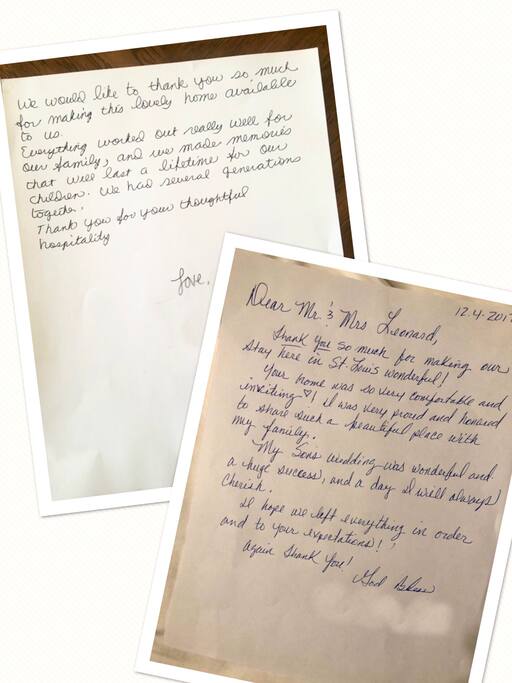 We would like to thank you so much
for making this lovely home available
to us.
Everything worked out really well for
our family, and we made memories
that will last a lifetime for our
children. We had several generations
together.
Thank you for your thoughtful
hospitality
Love,
12.4.2017
Dear Mr. & Mrs Leonard,
Thank You so much for making our
stay here in St. Louis wonderful!
Your home was so very comfortable and
inviting ♡! I was very proud and honored
to share such a beautiful place with
my family.
My Sons wedding was wonderful and
a huge success, and a day I will always
cherish.
I hope we left everything in order
and to your expectations!
Again Thank You!
God Bless